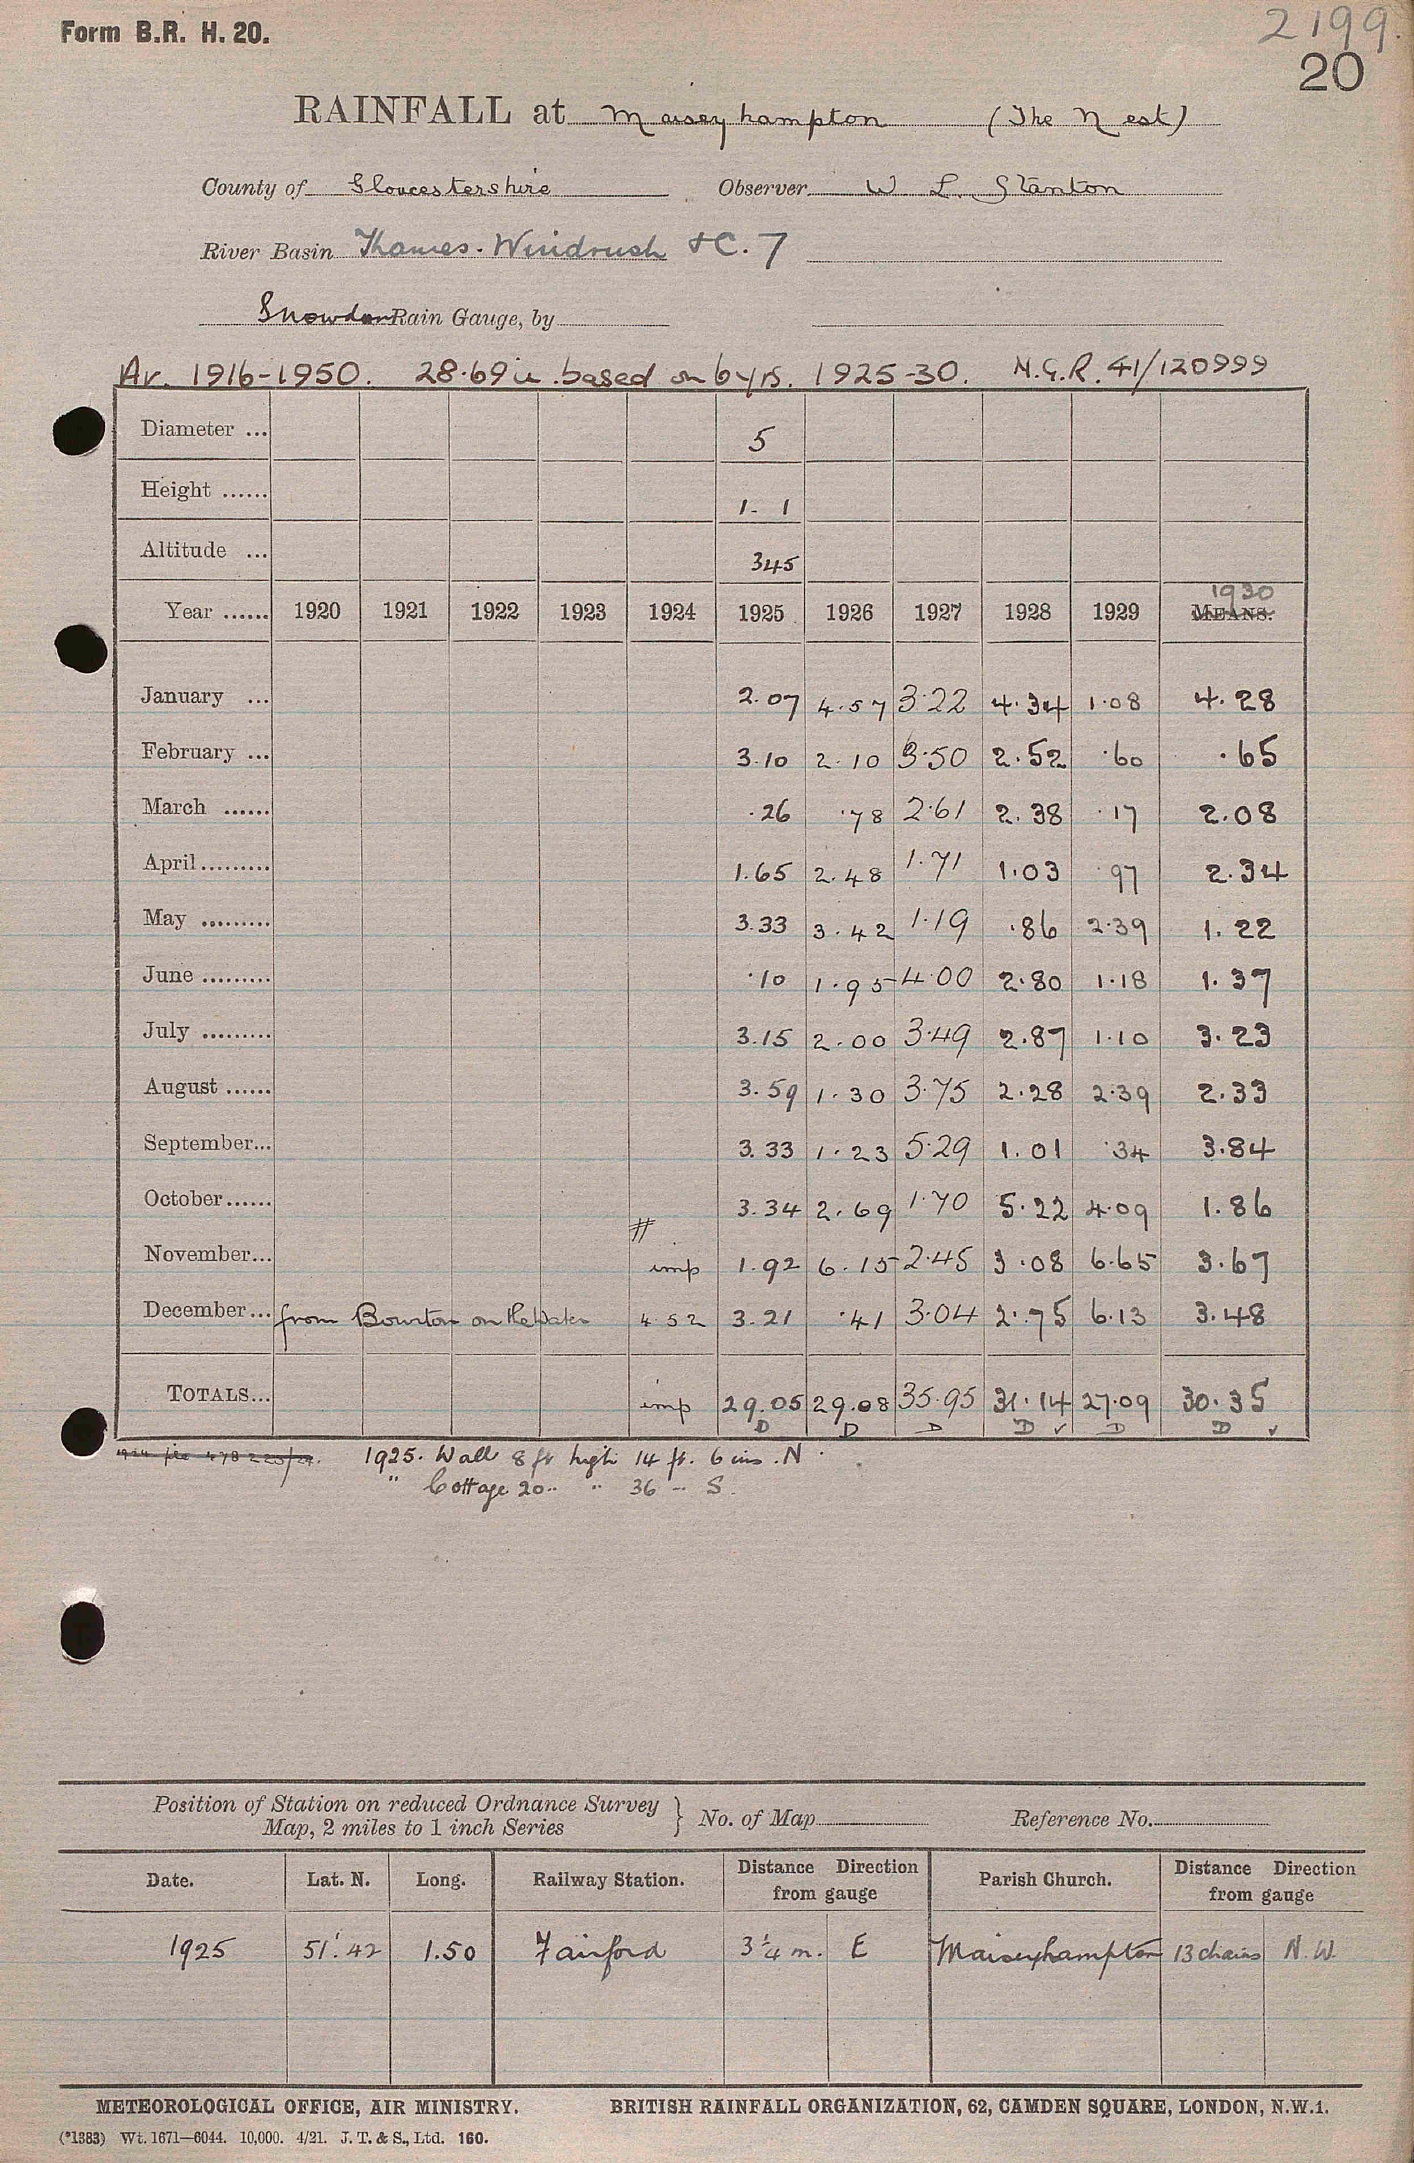 Form B.R. H. 20.
2199.
20
RAINFALL at Maiseyhampton (The Nest)
County of Gloucestershire Observer W L. Stanton
River Basin Thames. Windrush &C. 7
Snowdon Rain Gauge, by
Av. 1916-1950. 28.69 in. based on 6 yrs. 1925-30. N.G.R. 41/120999
Diameter ... 5
Height ...... 1. 1
Altitude ... 345
1930
Year ...... 1920 1921 1922 1923 1924 1925 1926 1927 1928 1929 MEANS.
January ... 2.07 4.57 3.22 4.34 1.08 4.28
February ... 3.10 2.10 3.50 2.52 .60 .65
March ...... .26 .78 2.61 2.38 .17 2.08
April ......... 1.65 2.48 1.71 1.03 .97 2.34
May ......... 3.33 3.42 1.19 .86 2.39 1.22
June ......... .10 1.95 4.00 2.80 1.18 1.37
July ......... 3.15 2.00 3.49 2.87 1.10 3.23
August ...... 3.59 1.30 3.75 2.28 2.39 2.33
September... 3.33 1.23 5.29 1.01 .34 3.84
October ...... 3.34 2.69 1.70 5.22 4.09 1.86
November... # imp 1.92 6.15 2.45 3.08 6.65 3.67
December... from Bourton on the Water 4.52 3.21 .41 3.04 2.75 6.13 3.48
TOTALS... imp 29.05 29.08 35.95 31.14 27.09 30.35
D D D D ✓ D D ✓
1925. Wall 8 ft high 14 ft. 6 ins. N.
" Cottage 20 .. .. 36 .. S.
Position of Station on reduced Ordnance Survey
Map, 2 miles to 1 inch Series } No. of Map Reference No.
Date. Lat. N. Long. Railway Station. Distance Direction from gauge Parish Church. Distance Direction from gauge
1925 51°.42 1.50 Fairford 3¼ m. E Maiseyhampton 13 chains N.W.
METEOROLOGICAL OFFICE, AIR MINISTRY. BRITISH RAINFALL ORGANIZATION, 62, CAMDEN SQUARE, LONDON, N.W.1.
(*1383) Wt. 1671—6044. 10,000. 4/21. J. T. & S., Ltd. 160.